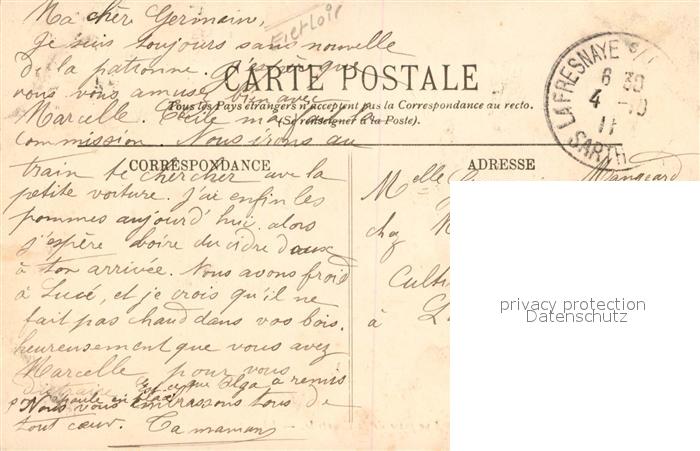 Ma chère Germaine,
Je suis toujours sans nouvelle
de la patronne. J'espère que
vous vous amusez bien avec
Marcelle. Cécile m'a fait la
commission. Nous irons au
train te chercher avec la
petite voiture. J'ai enfin les
pommes aujourd'hui. alors
j'espère boire du cidre doux
à ton arrivée. Nous avons froid
à Lucé, et je crois qu'il ne
fait pas chaud dans vos bois.
heureusement que vous avez
Marcelle pour vous
distraire. Est-ce que Olga a remis
Nous vous embrassons tous de
tout cœur. Ta maman
CARTE POSTALE
Tous les Pays étrangers n'acceptent pas la Correspondance au recto.
(Se renseigner à la Poste).
CORRESPONDANCE
ADRESSE
Melle Mangeard
chez
à
LA FRESNAYE S/
6 30
4 -10
11
SARTH
privacy protection
Datenschutz